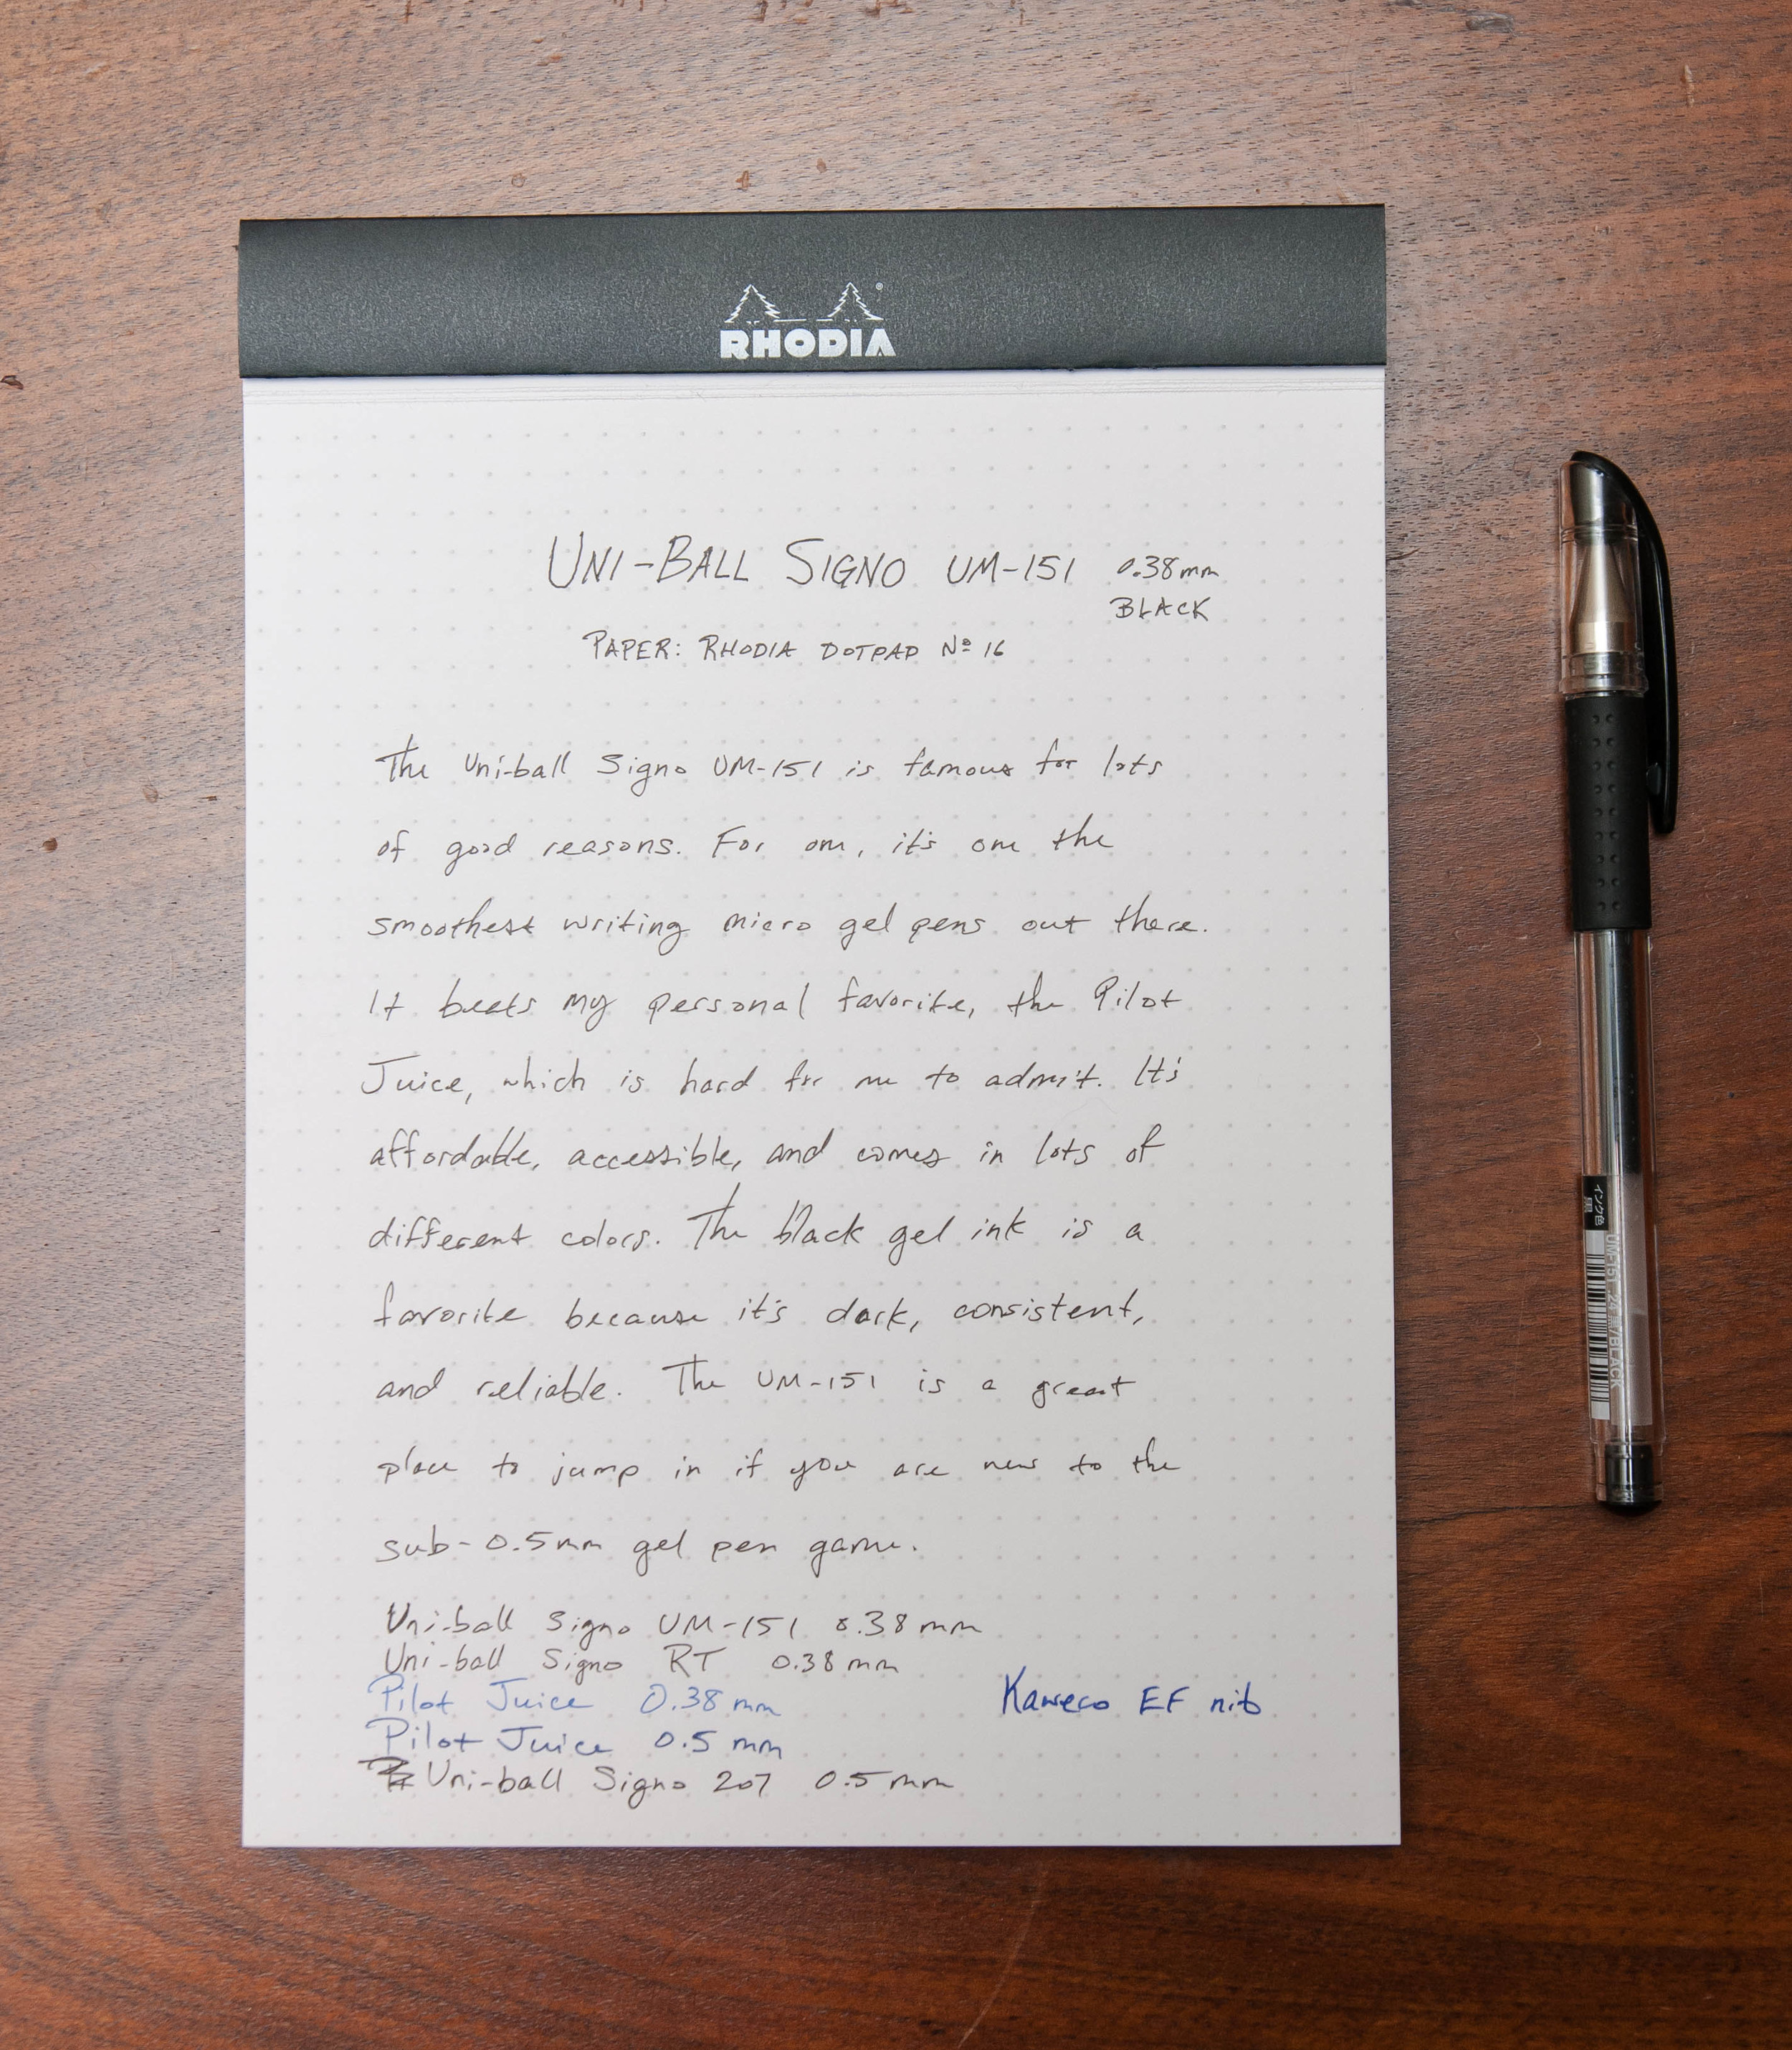 RHODIA
UNI-BALL SIGNO UM-151 0.38mm
BLACK
PAPER: RHODIA DOTPAD Nº 16
The Uni-ball Signo UM-151 is famous for lots
of good reasons. For one, it's one the
smoothest writing micro gel pens out there.
It beats my personal favorite, the Pilot
Juice, which is hard for me to admit. It's
affordable, accessible, and comes in lots of
different colors. The black gel ink is a
favorite because it's dark, consistent,
and reliable. The UM-151 is a great
place to jump in if you are new to the
sub-0.5mm gel pen game.
Uni-ball Signo UM-151 0.38mm
Uni-ball Signo RT 0.38mm
Pilot Juice 0.38mm
Kaweco EF nib
Pilot Juice 0.5mm
Uni-ball Signo 207 0.5mm
インク色
黒
UM-151 /BLACK